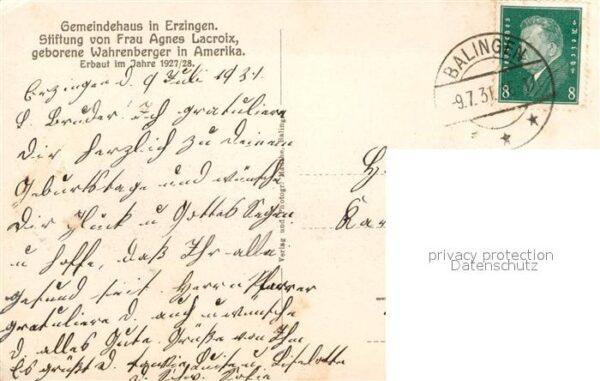 Gemeindehaus in Erzingen.
Stiftung von Frau Agnes Lacroix,
geborene Wahrenberger in Amerika.
Erbaut im Jahre 1927/28.
Erzingen d. 9 Juli 1931
L. Bruder! Ich gratuliere
Dir herzlich zu Deinem
Geburtstage und wünsche
Dir Glück u Gottes Segen
u hoffe, daß Ihr alle
gesund seit. Herrn Pfarrer
gratuliere d. auch u wünsche
d. alles Gute. Grüße von Ihm
Es grüßt d. Liselotte
Verlag und Photogr.
BALINGEN
-9.7.31
8 8
H
Kar
privacy protection
Datenschutz